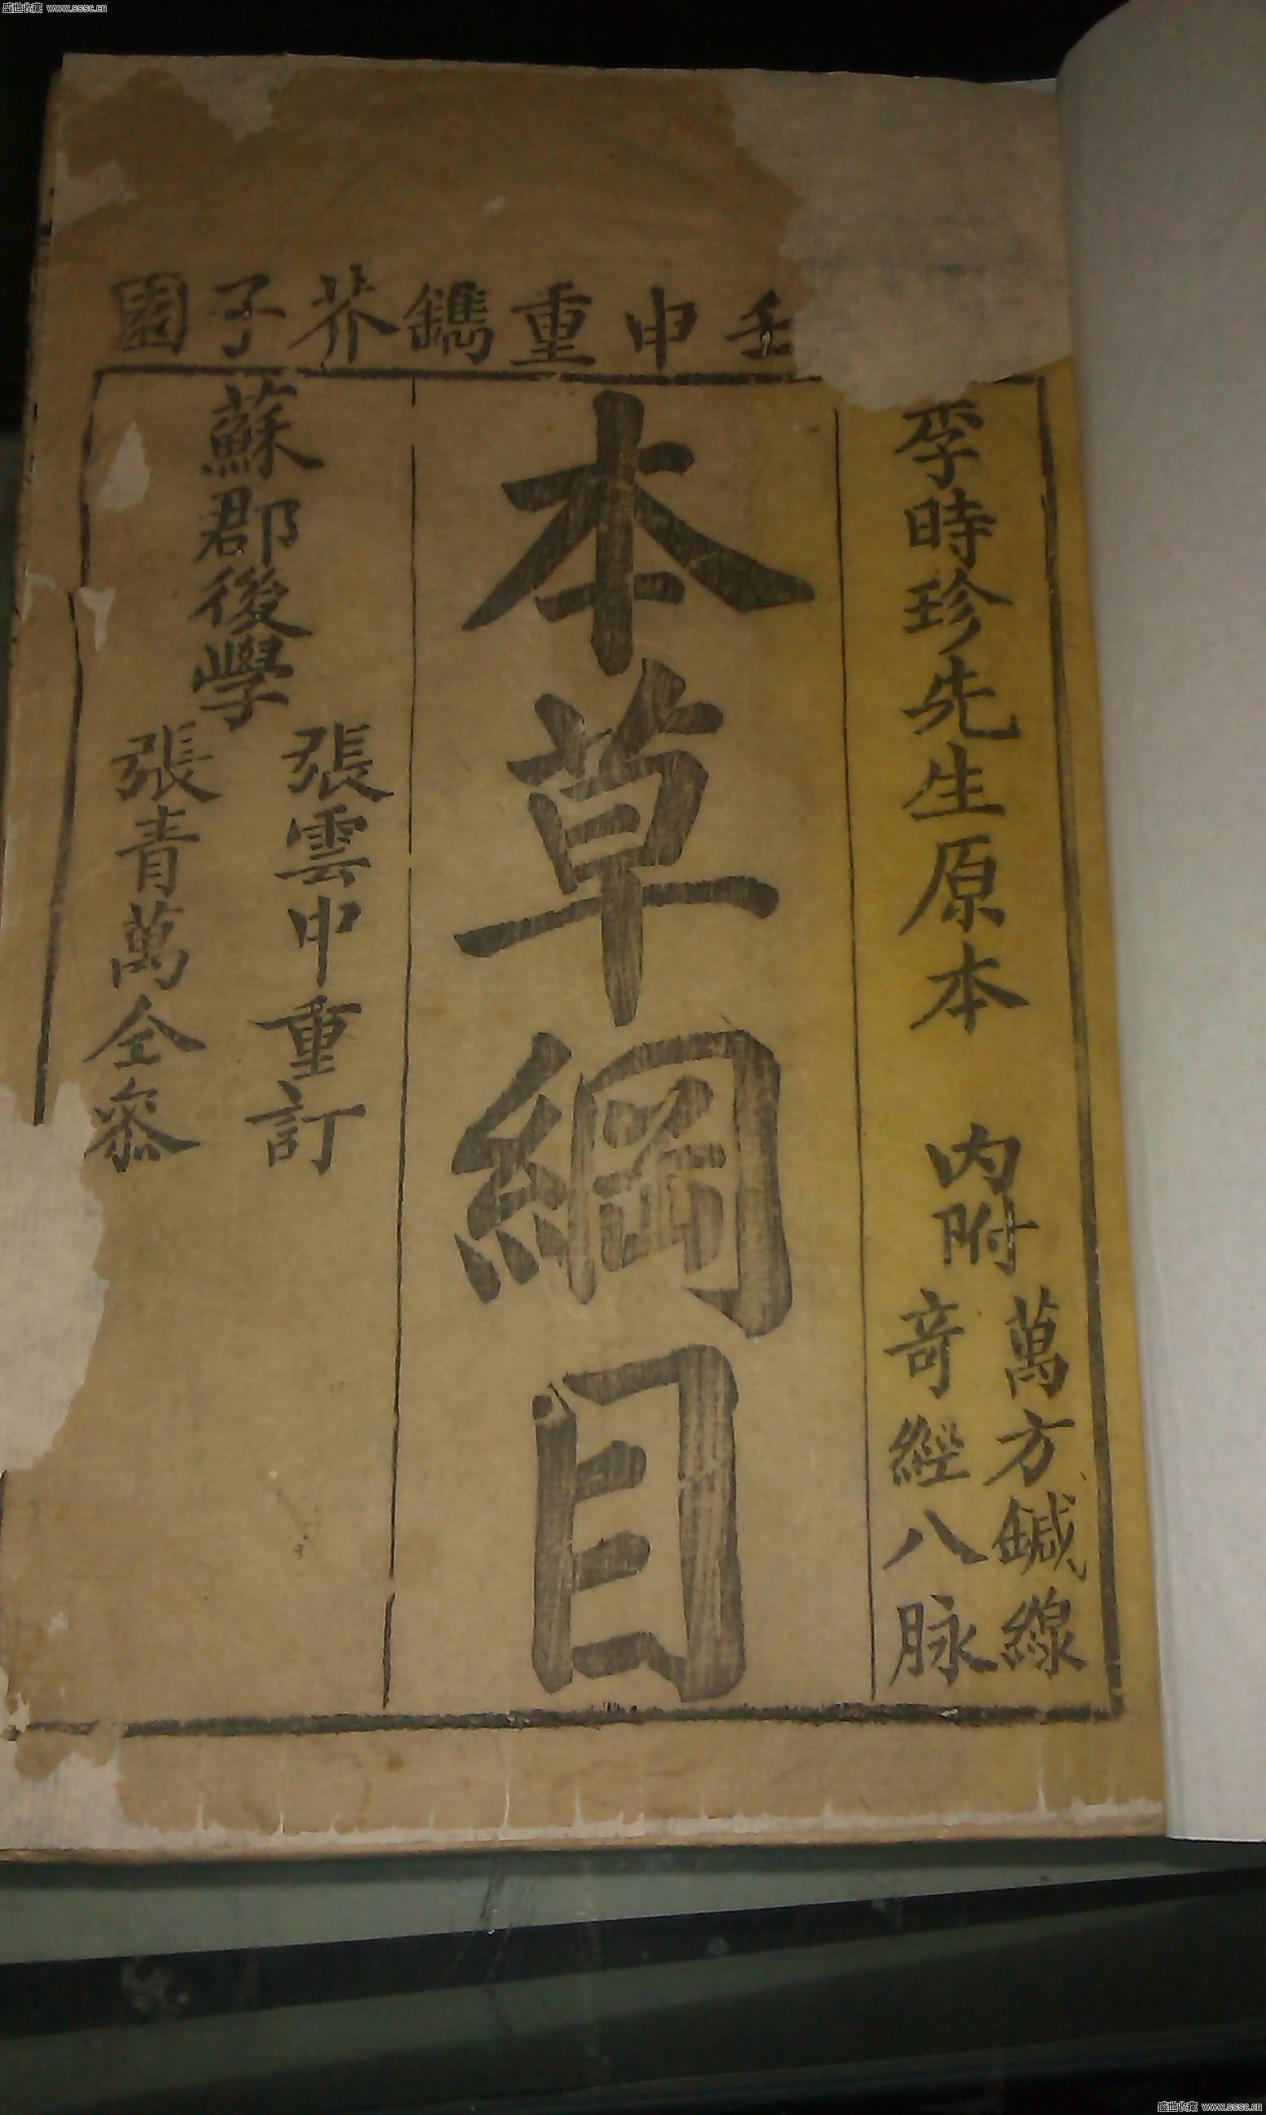 盛世收藏 www.sssc.cn
壬申重鐫芥子園
李時珍先生原本 內附
萬方鍼線
奇經八脉
本草綱目
蘇郡後學
張雲中重訂
張青萬仝叅
盛世收藏 www.sssc.cn